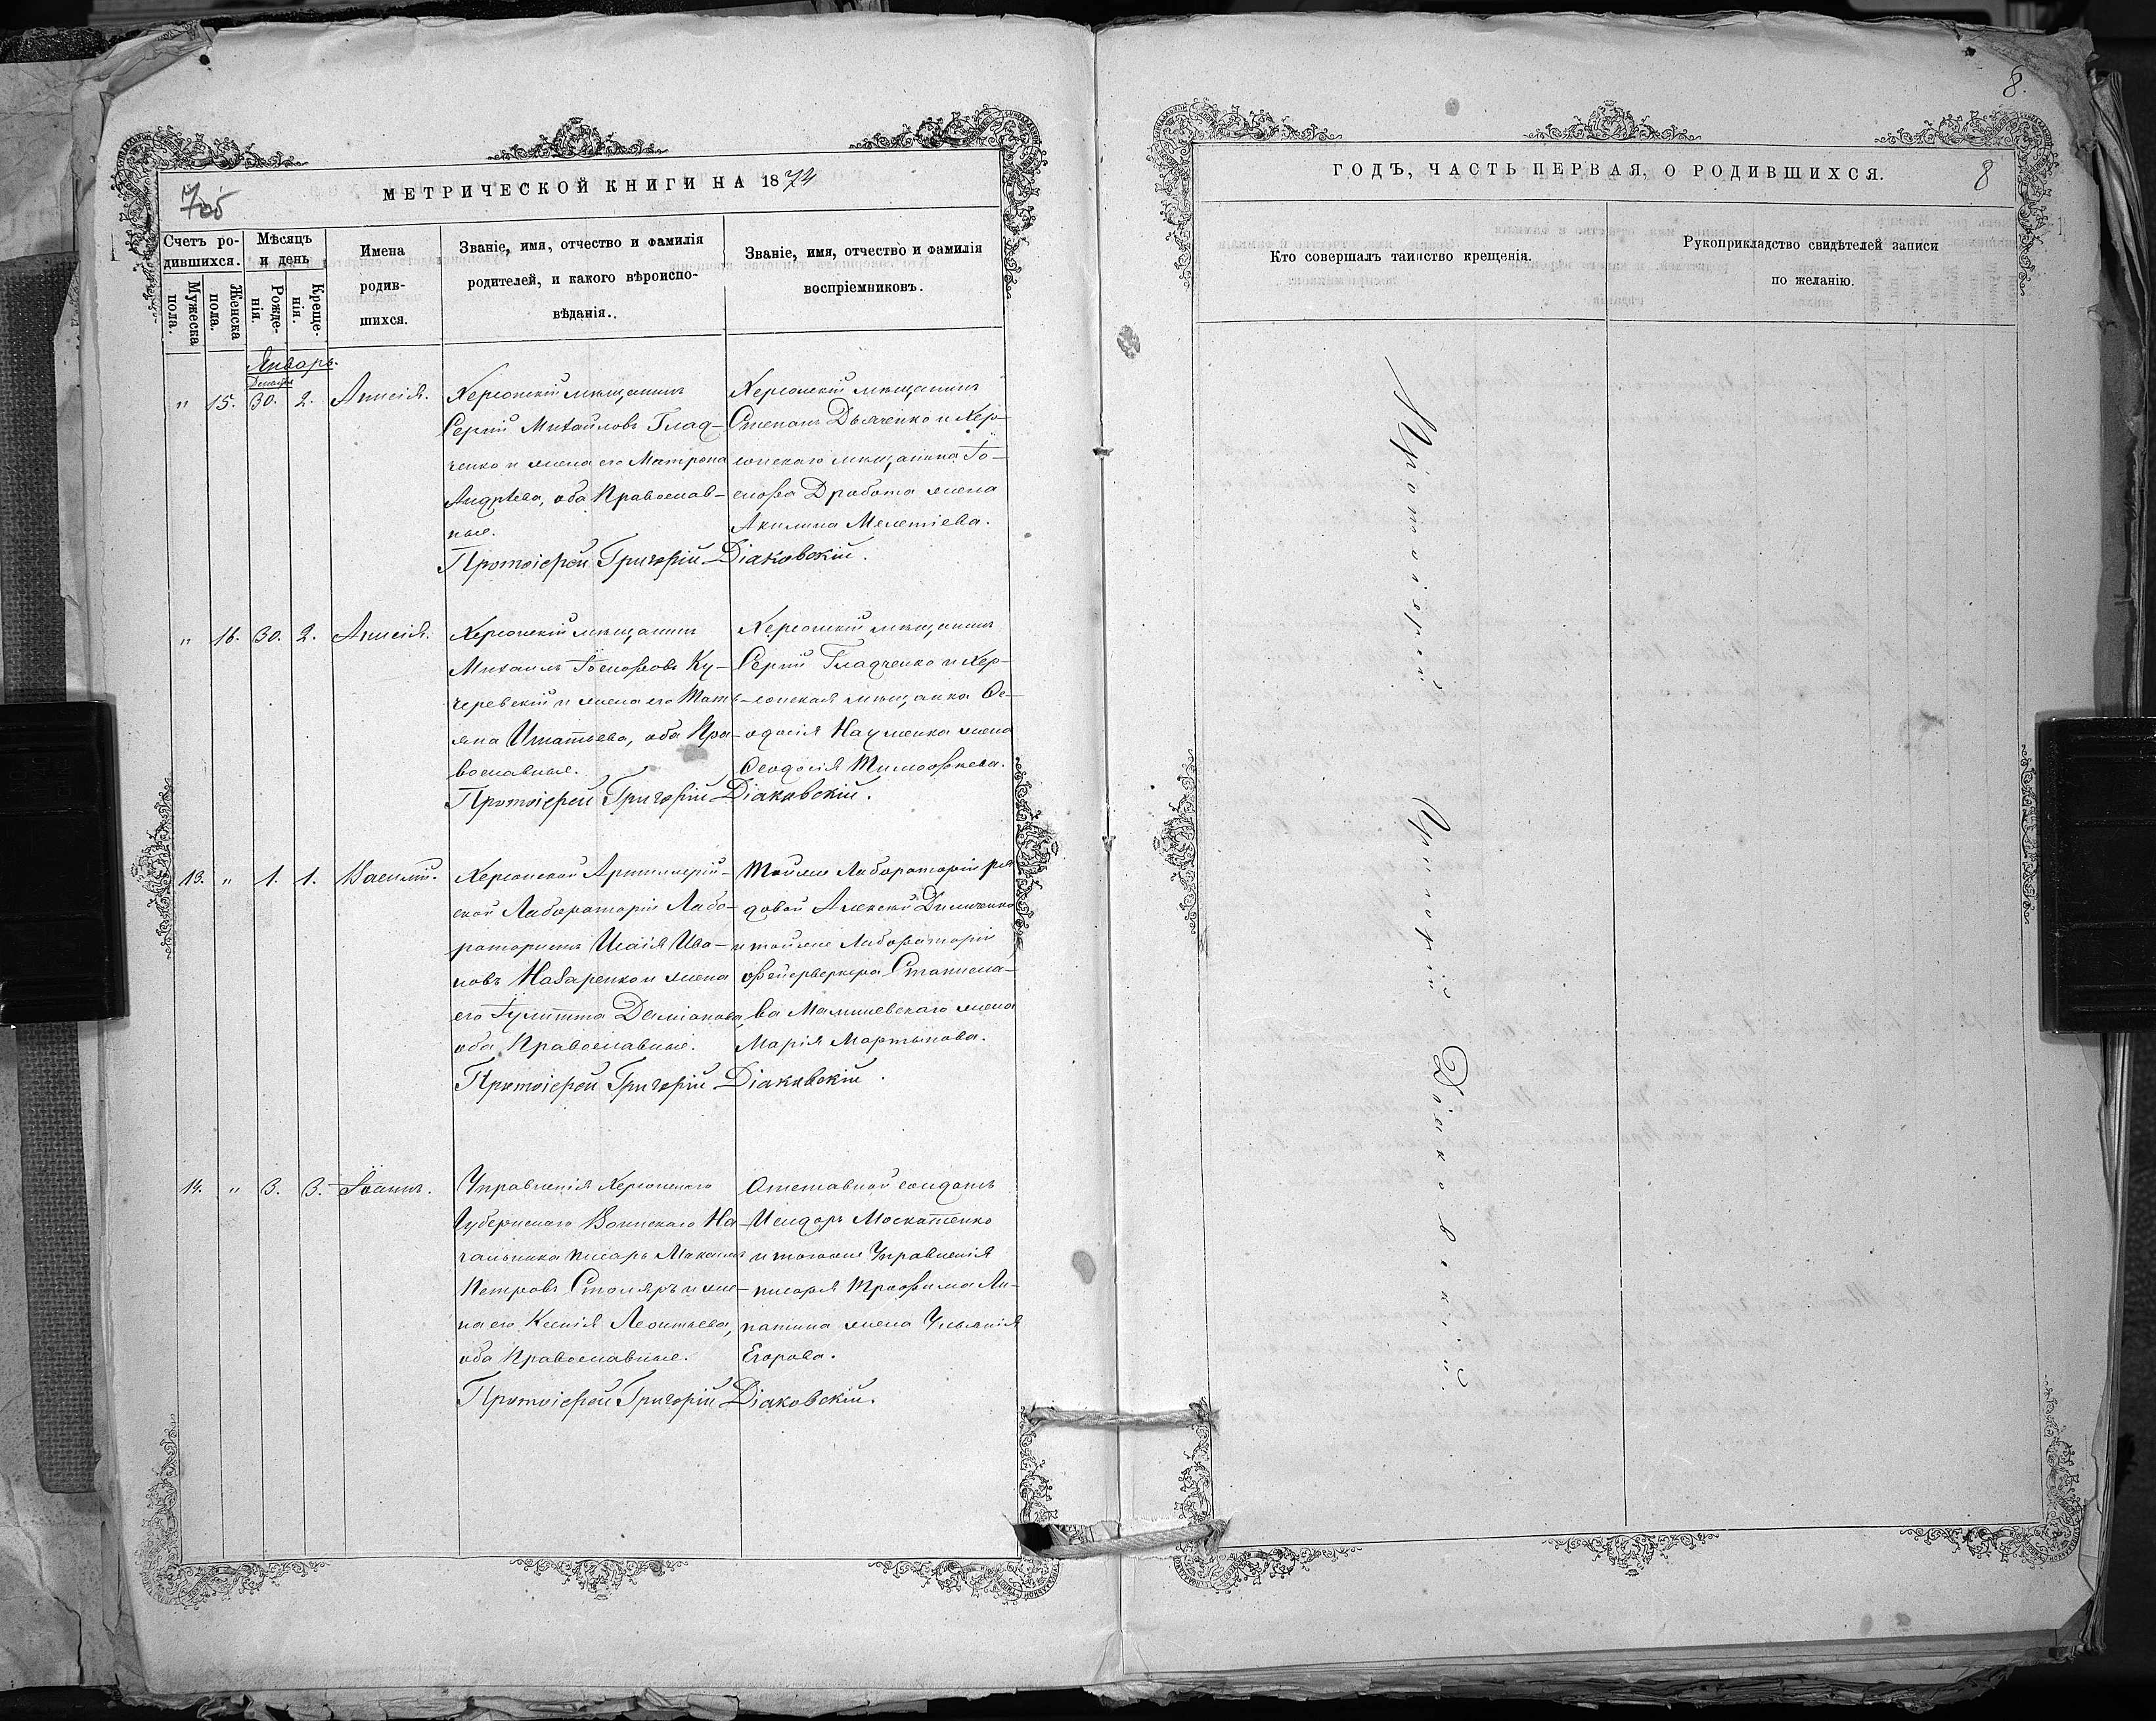 8.
МЕТРИЧЕСКОЙ КНИГИ НА 1874
705
Счетъ ро-
дившихся.
Мужеска
пола.
Женска
пола.
Мѣсяцъ
и день
Рожде-
нія.
Креще-
нія.
Имена
родив-
шихся.
Званіе, имя, отчество и фамилія
родителей, и какого вѣроиспо-
вѣданія.
Званіе, имя, отчество и фамилія
воспріемниковъ.
Январь.
Декабря
" 15. 30. 2. Анисія.
Херсонскій мѣщанинъ
Сергій Михайловъ Глад-
ченко и жена его Матрона
Андрѣева, оба Православ-
ные.
Херсонскій мѣщанинъ
Степанъ Дьяченко и Хер-
сонскаго мѣщанина Іо-
сифа Дробота жена
Акилина Мелетіева.
Протоіерей Григорій Діаковскій.
" 16. 30. 2. Анисія.
Херсонскій мѣщанинъ
Михаилъ Іосифовъ Ку-
черевскій и жена его Тать-
яна Игнатьева, оба Пра-
вославные.
Херсонскій мѣщанинъ
Сергій Гладченко и Хер-
сонская мѣщанка Ѳе-
одосія Науменка жена
Ѳеодосія Тимоѳеева.
Протоіерей Григорій Діаковскій.
13. " 1. 1. Василій.
Херсонской Артиллерій-
ской Лабораторіи Лабо-
ратористъ Исаія Ива-
новъ Назаренко и жена
его Іулитта Даміанова,
оба Православные.
Той же Лабораторіи ря-
довой Алексѣй
и той же Лабораторіи
фейерверкера Станисла-
ва жена
Марія Мартынова.
Протоіерей Григорій Діаковскій.
14. " 3. 3. Іоаннъ.
Управленія Херсонскаго
Губернскаго Воинскаго На-
чальника писарь Максимъ
Петровъ Столяръ и же-
на его Ксенія Леонтьева,
оба Православные.
Отставной солдатъ
Исидоръ Москатенко
и того же Управленія
писаря Трофима Ли-
патина жена Ульянія
Егорова.
Протоіерей Григорій Діаковскій.
ГОДЪ, ЧАСТЬ ПЕРВАЯ, О РОДИВШИХСЯ.
8
Кто совершалъ таинство крещенія.
Рукоприкладство свидѣтелей записи
по желанію.
Протоіерей Григорій Діаковскій.